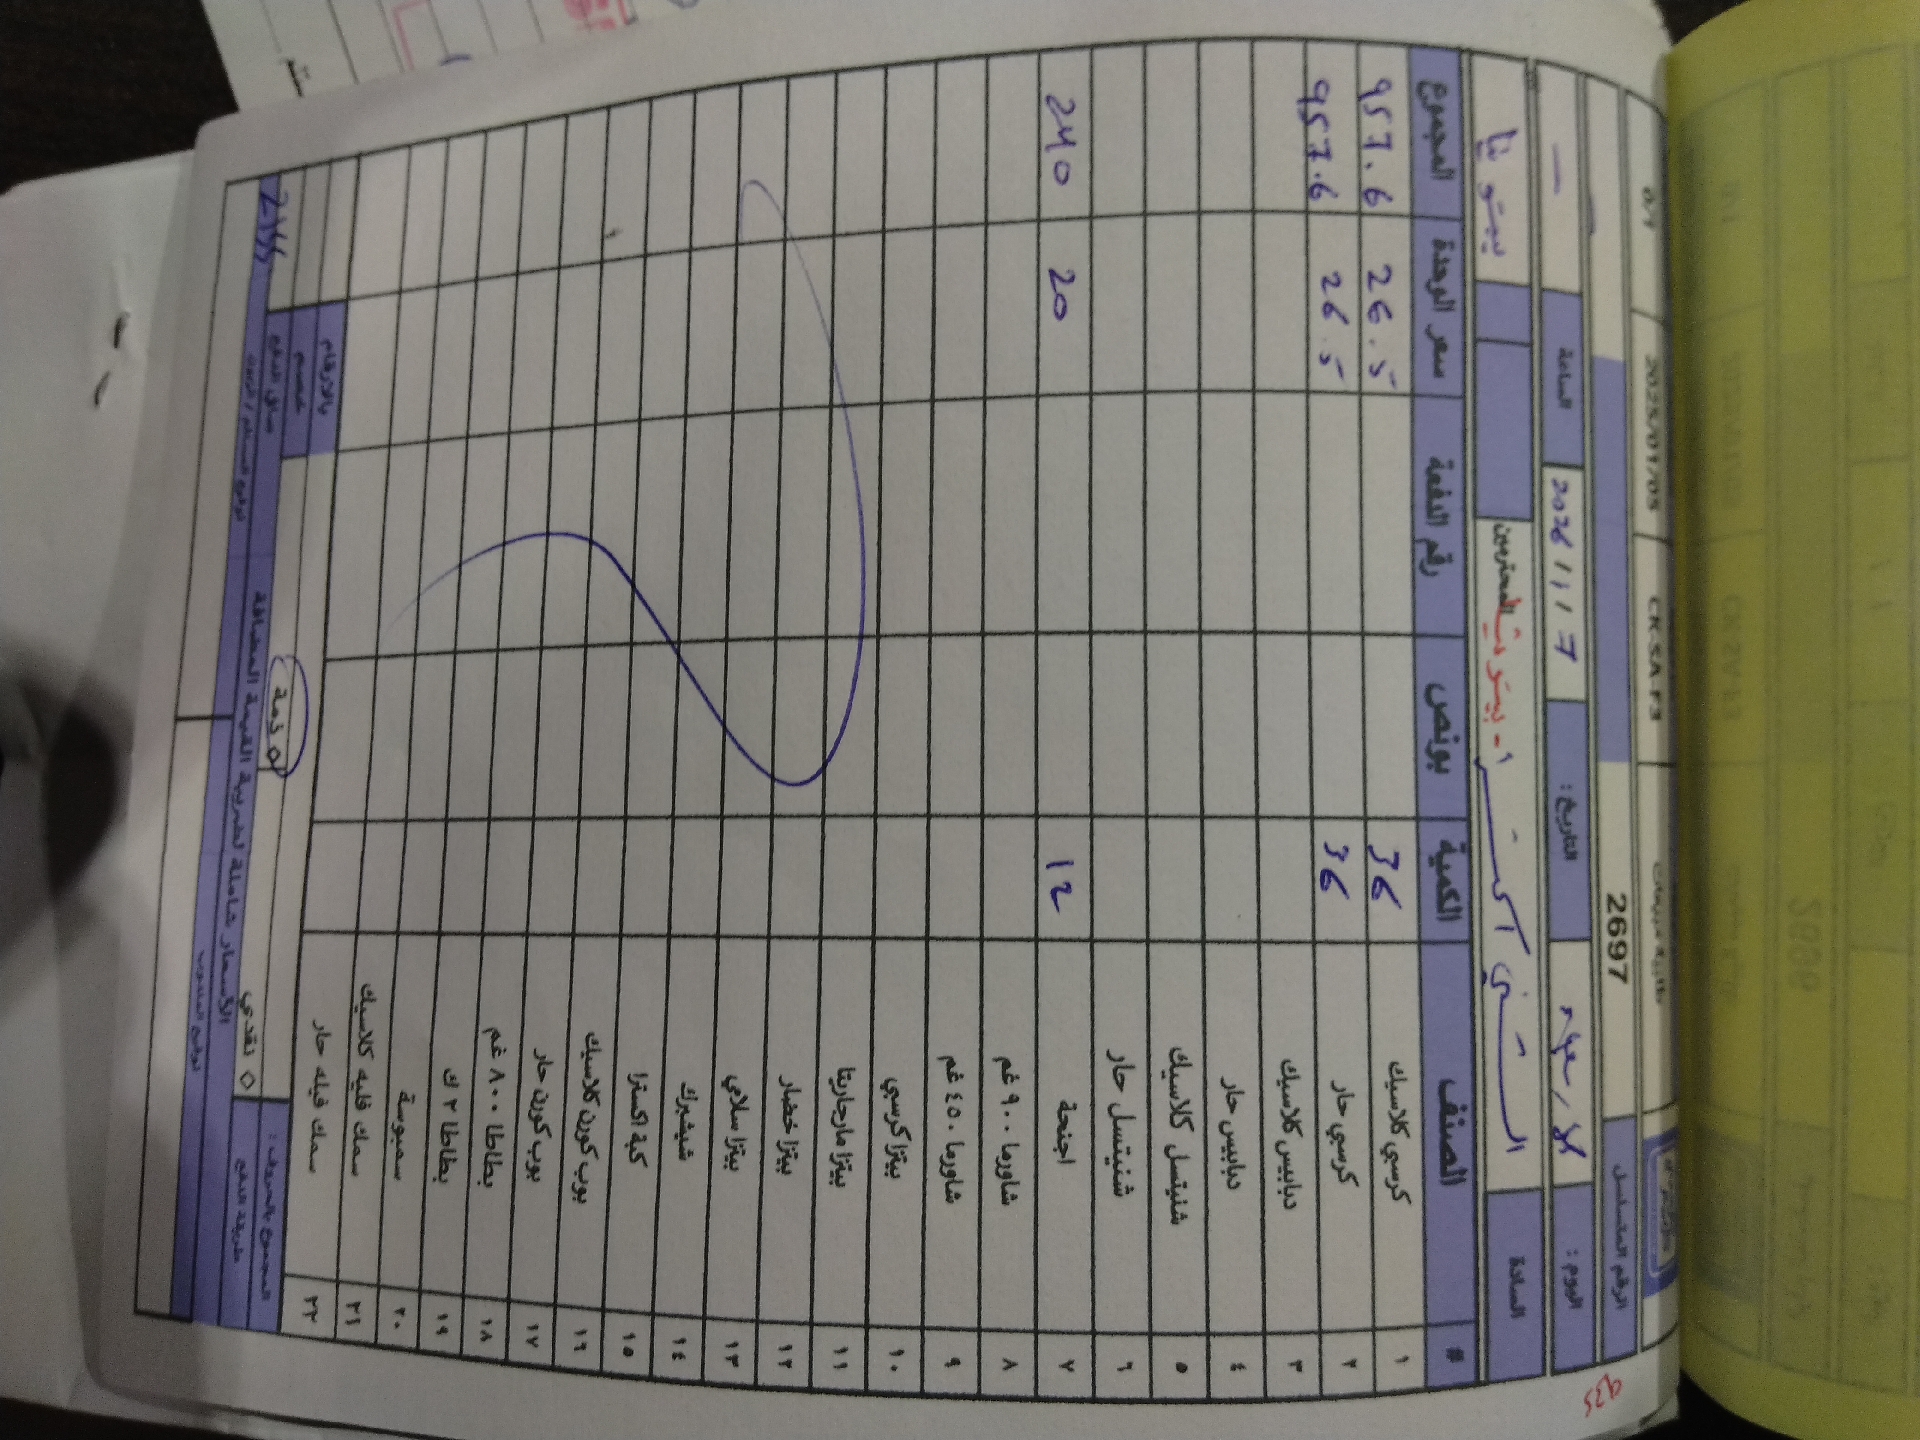 طلبية مبيعات CK-SA-F3 2025/01/05
الرقم المتسلسل 2697
اليوم: الاربعاء التاريخ: 2026/1/7 الساعة -
السادة المحترمين بيتونيا
# الصنف الكمية بونص رقم الدفعة سعر الوحدة المجموع
١ كرسبي كلاسيك 36 26.5 957.6
٢ كرسبي حار 36 26.5 957.6
٣ دبابيس كلاسيك
٤ دبابيس حار
٥ شنيتسل كلاسيك
٦ شنيتسل حار
٧ اجنحة 12 20 240
٨ شاورما ٩٠٠ غم
٩ شاورما ٤٥٠ غم
١٠ بيتزا كرسبي
١١ بيتزا مارجاريتا
١٢ بيتزا خضار
١٣ بيتزا سلامي
١٤ شيشبرك
١٥ كبة اكسترا
١٦ بوب كورن كلاسيك
١٧ بوب كورن حار
١٨ بطاطا ٨٠٠ غم
١٩ بطاطا ٢ ك
٢٠ سمبوسة
٢١ سمك فليه كلاسيك
٢٢ سمك فيليه حار
المجموع بالحروف: بالارقام
خصم
طريقة الدفع ◊ نقدي ◊ ذمة صافي الدفع 2155
الأسعار شاملة لضريبة القيمة المضافة
935